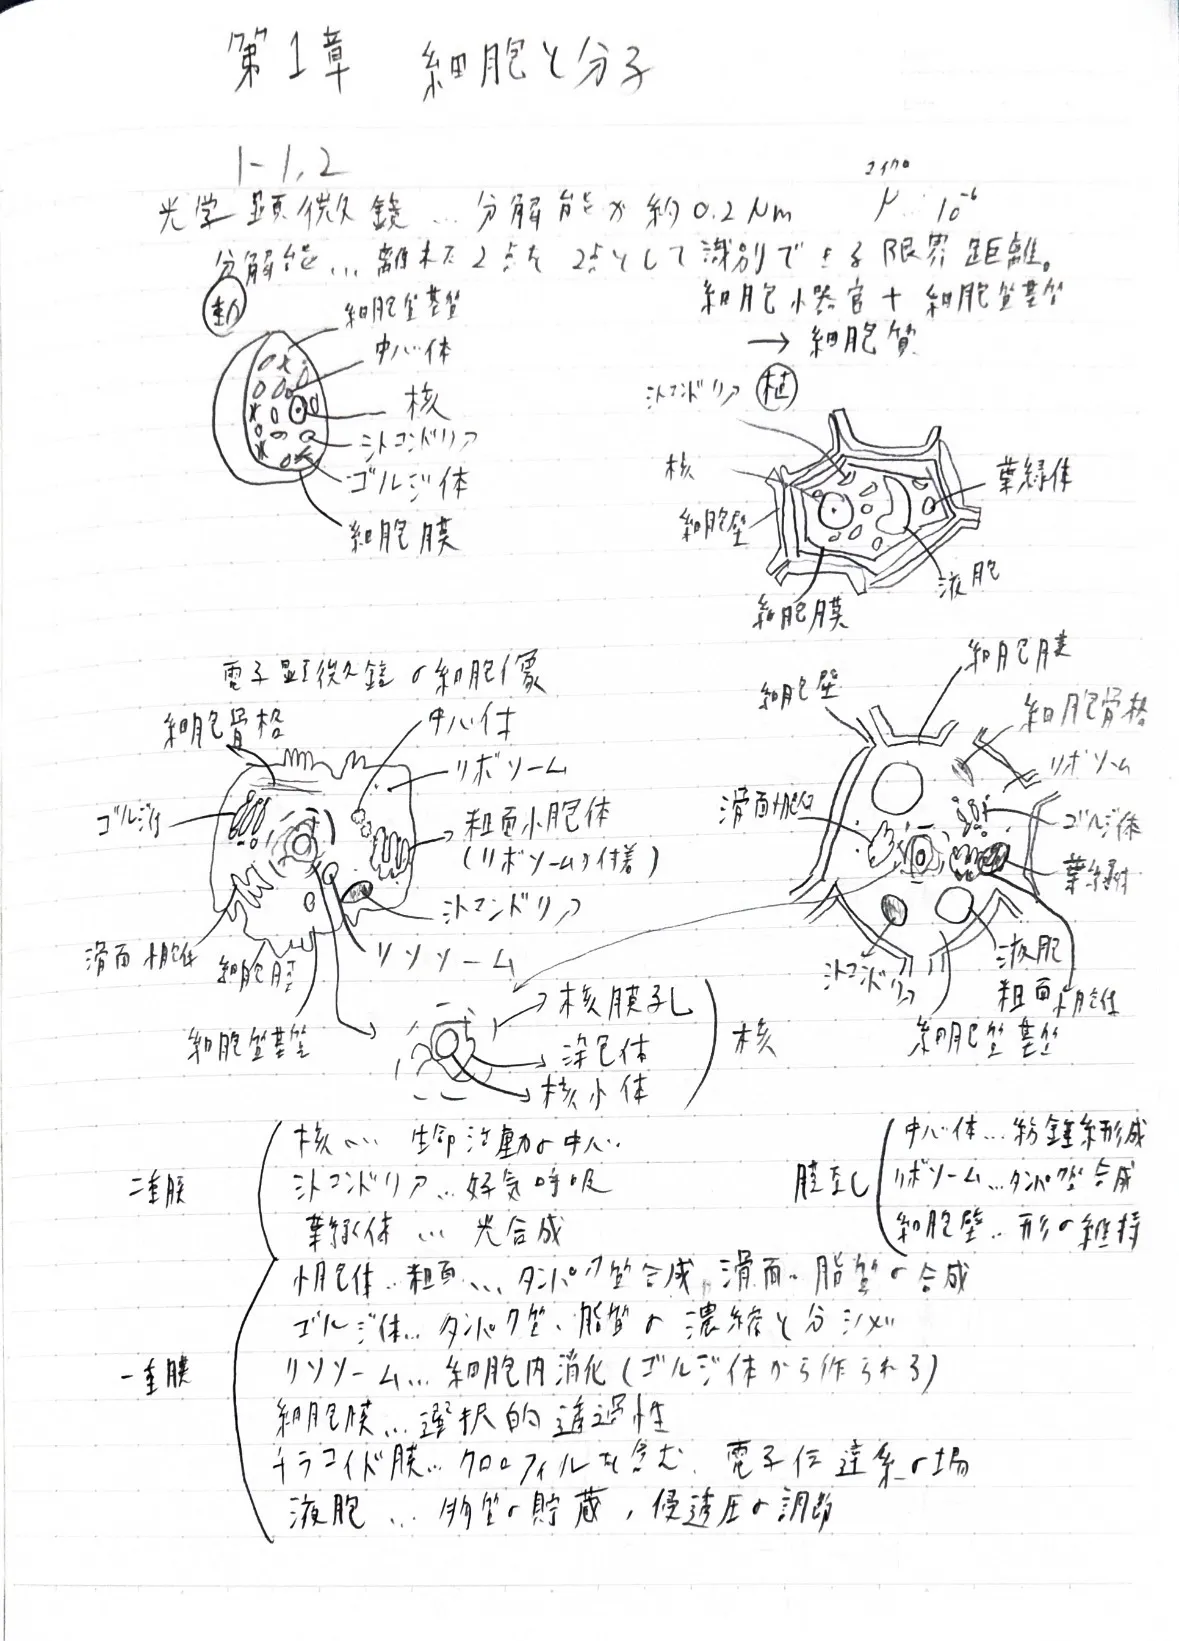 第1章 細胞と分子
1-1,2
マイクロ
光学顕微鏡…分解能が約0.2μm μ…10⁻⁶
分解能…離れた2点を2点として識別できる限界距離。
動
細胞小器官+細胞質基質
→細胞質
細胞質基質
中心体
核
ミトコンドリア
ゴルジ体
細胞膜
植
ミトコンドリア
核
細胞壁
細胞膜
葉緑体
液胞
電子顕微鏡の細胞像
細胞骨格
中心体
リボソーム
ゴルジ体
粗面小胞体
(リボソームが付着)
ミトコンドリア
滑面小胞体
細胞膜
リソソーム
細胞質基質
細胞壁
細胞膜
細胞骨格
リボソーム
滑面小胞体
ゴルジ体
葉緑体
ミトコンドリア
液胞
粗面小胞体
細胞質基質
核膜孔
染色体
核小体
核
二重膜
核…生命活動の中心
ミトコンドリア…好気呼吸
葉緑体…光合成
膜なし
中心体…紡錘糸形成
リボソーム…タンパク質合成
細胞壁…形の維持
一重膜
小胞体…粗面…タンパク質合成、滑面…脂質の合成
ゴルジ体…タンパク質、脂質の濃縮と分泌
リソソーム…細胞内消化(ゴルジ体から作られる)
細胞膜…選択的透過性
チラコイド膜…クロロフィルを含む、電子伝達系の場
液胞…物質の貯蔵、浸透圧の調節